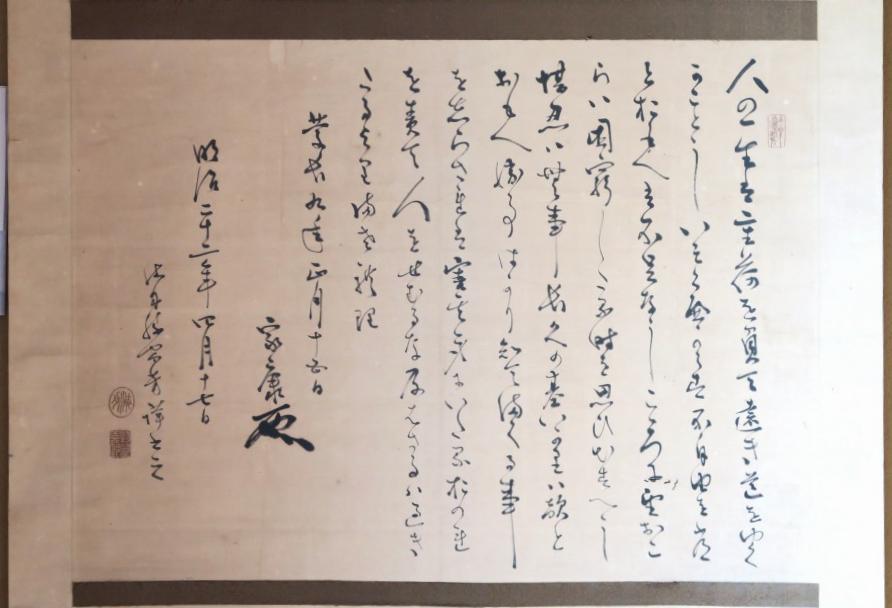 人の一生は重荷を負て遠き道をゆく
かことしいそくへからす不自由を常
とおもへは不足なしこころに望おこ
らは困窮したる時を思ひ出すへし
堪忍は無事長久の基いかりは敵と
おもへ勝事はかり知て満くる事
をしらされは害其身にいたるおのれ
を責て人をせむるな及はさるは過き
たるより満さ礼理
慶長九年正月十五日
家康
明治二十二年四月十七日
謹書之